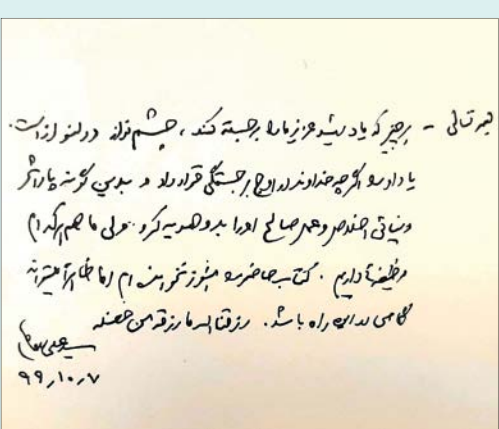 بسمه تعالی - هر چیز که یاد شهید عزیز ما را برجسته کند، چشم‌نواز و دلنواز است.
یاد او را اگر چه خداوند در اوج برجستگی قرار داد و بدین گونه پاداش
دنیائی اخلاص و عمل صالح او را بدو هدیه کرد ولی ما هم هرکدام
وظیفه‌ای داریم. کتاب حاضر را هنوز نخوانده‌ام اما ظاهراً میتواند
گامی در این راه باشد. رزقنا الله ما رزقه من فضله
سیدعلی خامنه‌ای
۹۹،۱۰،۷